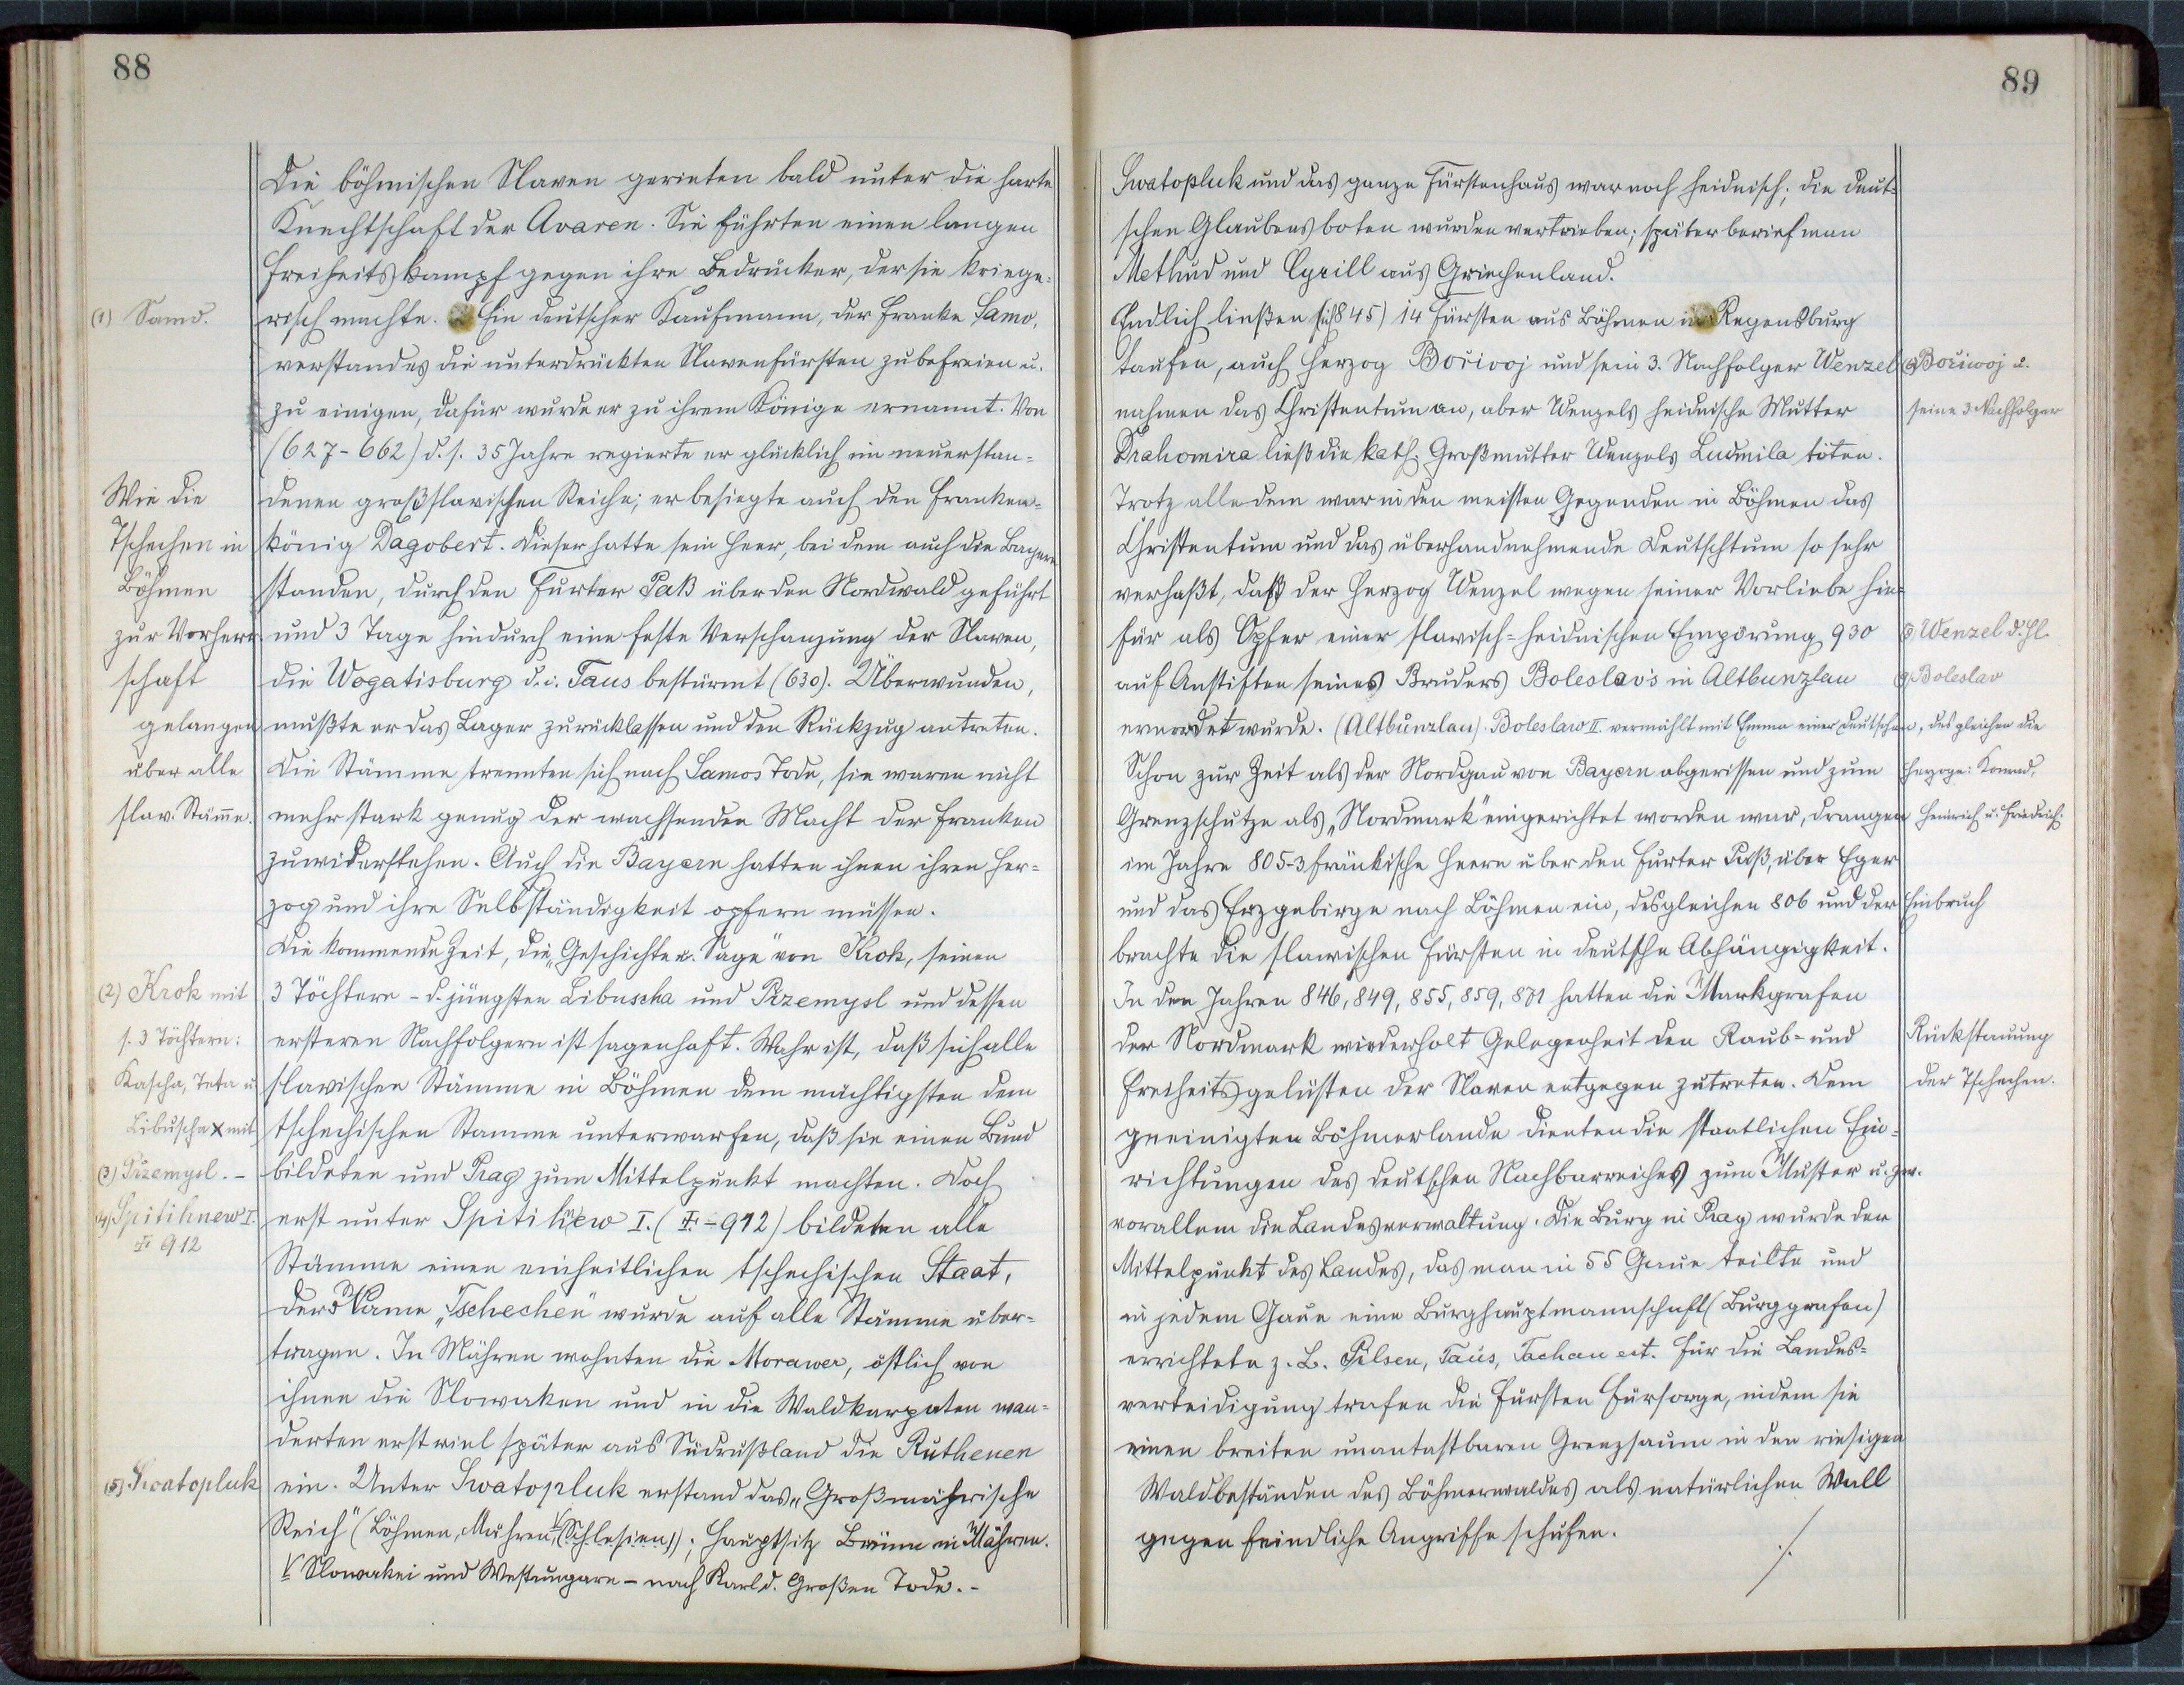 88
Die böhmischen Slaven gerieten bald unter die harte
Knechtschaft der Avaren. Sie führten einen langen
Freiheitskampf gegen ihre Bedrücker, der sie kriege-
(1) Samo.
risch machte. Ein deutscher Kaufmann, der Franke Samo,
verstand es die unterdrückten Slavenfürsten zu befreien u.
zu einigen, dafür wurde er zu ihrem Könige ernannt. Von
(627-662) d. s. 35 Jahre regierte er glücklich im neuerstan-
Wie die
denen großslavischen Reiche; er besiegte auch den Franken-
Tschechen in
könig Dagobert. Dieser hatte sein Heer, bei dem auch die Bayern
Böhmen
standen, durch den Further Paß über den Nordwald geführt
zur Vorherr
und 3 Tage hindurch eine feste Verschanzung der Slaven,
schaft
die Wogatisburg d. i. Taus bestürmt (630). Überwunden,
gelangen
mußte er das Lager zurücklassen und den Rückzug antreten.
über alle
Die Stämme trennten sich nach Samos Tode, sie waren nicht
slav. Stäm̄e.
mehr stark genug der wachsenden Macht der Franken
zuwiderstehen. Auch die Bayern hatten ihnen ihren Her-
zog und ihre Selbständigkeit opfern müssen.
Die kommende Zeit, die „Geschichte u. Sage" von Krok, seinen
(2) Krok mit
3 Töchtern - d. jüngsten Libuscha und Przemysl und dessen
s. 3 Töchtern:
ersteren Nachfolgern ist sagenhaft. Wahr ist, daß sich alle
Kascha, Teta u
slavischen Stämme in Böhmen dem mächtigsten dem
Libuscha x mit
tschechischen Stamme unterwarfen, daß sie einen Bund
(3) Przemysl. -
bildeten und Prag zum Mittelpunkt machten. Doch
(4) Spitihnew I.
erst unter Spitihnew I. ( ✝ -912) bildeten alle
✝ 912
Stämme einen einheitlichen tschechischen Staat,
der Name „Tschechen" wurde auf alle Stämme über-
tragen. In Mähren wohnten die Morawer, östlich von
ihnen die Slowaken und in die Waldkarpaten wan-
derten erst viel später aus Südrußland die Ruthenen
(5) Swatopluk
ein. Unter Swatopluk erstand das „Großmährische
Reich" (Böhmen, Mähren, (Schlesien)); Hauptsitz Brünn in Mähren.
V Slowakei und Westungarn - nach Karl d. Großen Tode. -
89
Swatopluk und das ganze Fürstenhaus war noch heidnisch; die deut-
schen Glaubensboten wurden vertrieben; später berief man
Methud und Cyrill aus Griechenland.
Endlich ließen sich 845) 14 Fürsten aus Böhmen in Regensburg
taufen, auch Herzog Bořiwoj und sein 3. Nachfolger Wenzel
Bořiwoj u.
nahmen das Christentum an, aber Wenzels heidnische Mutter
seine 3 Nachfolger
Drahomira ließ die kath. Großmutter Wenzels Ludmila töten.
Trotz alledem war in den meisten Gegenden in Böhmen das
Christentum und das überhandnehmende Deutschtum so sehr
verhaßt, daß der Herzog Wenzel wegen seiner Vorliebe hie-
für als Opfer einer slavisch-heidnischen Empörung 930
Wenzel d. Hl.
auf Anstiften seines Bruders Boleslavs in Altbunzlau
Boleslav
ermordet wurde. (Altbunzlau). Boleslaw II. vermählt mit Emma einer Deutschen, desgleichen die
Schon zur Zeit als der Nordgau von Bayern abgerissen und zum
Herzoge: Konrad,
Grenzschutze als „Nordmark" eingerichtet worden war, drangen
Heinrich u. Friedrich.
im Jahre 805-3 fränkische Heere über den Further Paß, über Eger
und das Erzgebirge nach Böhmen ein, desgleichen 806 und der
Einbruch
brachte die slawischen Fürsten in deutsche Abhängigkeit.
In den Jahren 846, 849, 855, 859, 871 hatten die Markgrafen
der Nordmark wiederholt Gelegenheit den Raub- und
Rückstauung
Freiheitsgelüsten der Slaven entgegen zutreten. Dem
der Tschechen.
geeinigten Böhmerlande dienten die staatlichen Ein-
richtungen des deutschen Nachbarreiches zum Muster u. zw.
vorallem die Landesverwaltung. Die Burg in Prag wurde der
Mittelpunkt des Landes, das man in 55 Gaue teilte und
in jedem Gaue eine Burghauptmannschaft (Burggrafen)
errichtete z. B. Pilsen, Taus, Tachau ect. Für die Landes-
verteidigung trafen die Fürsten Fürsorge, indem sie
einen breiten unantastbaren Grenzsaum in den riesigen
Waldbeständen des Böhmerwaldes als natürlichen Wall
gegen feindliche Angriffe schufen.
./.